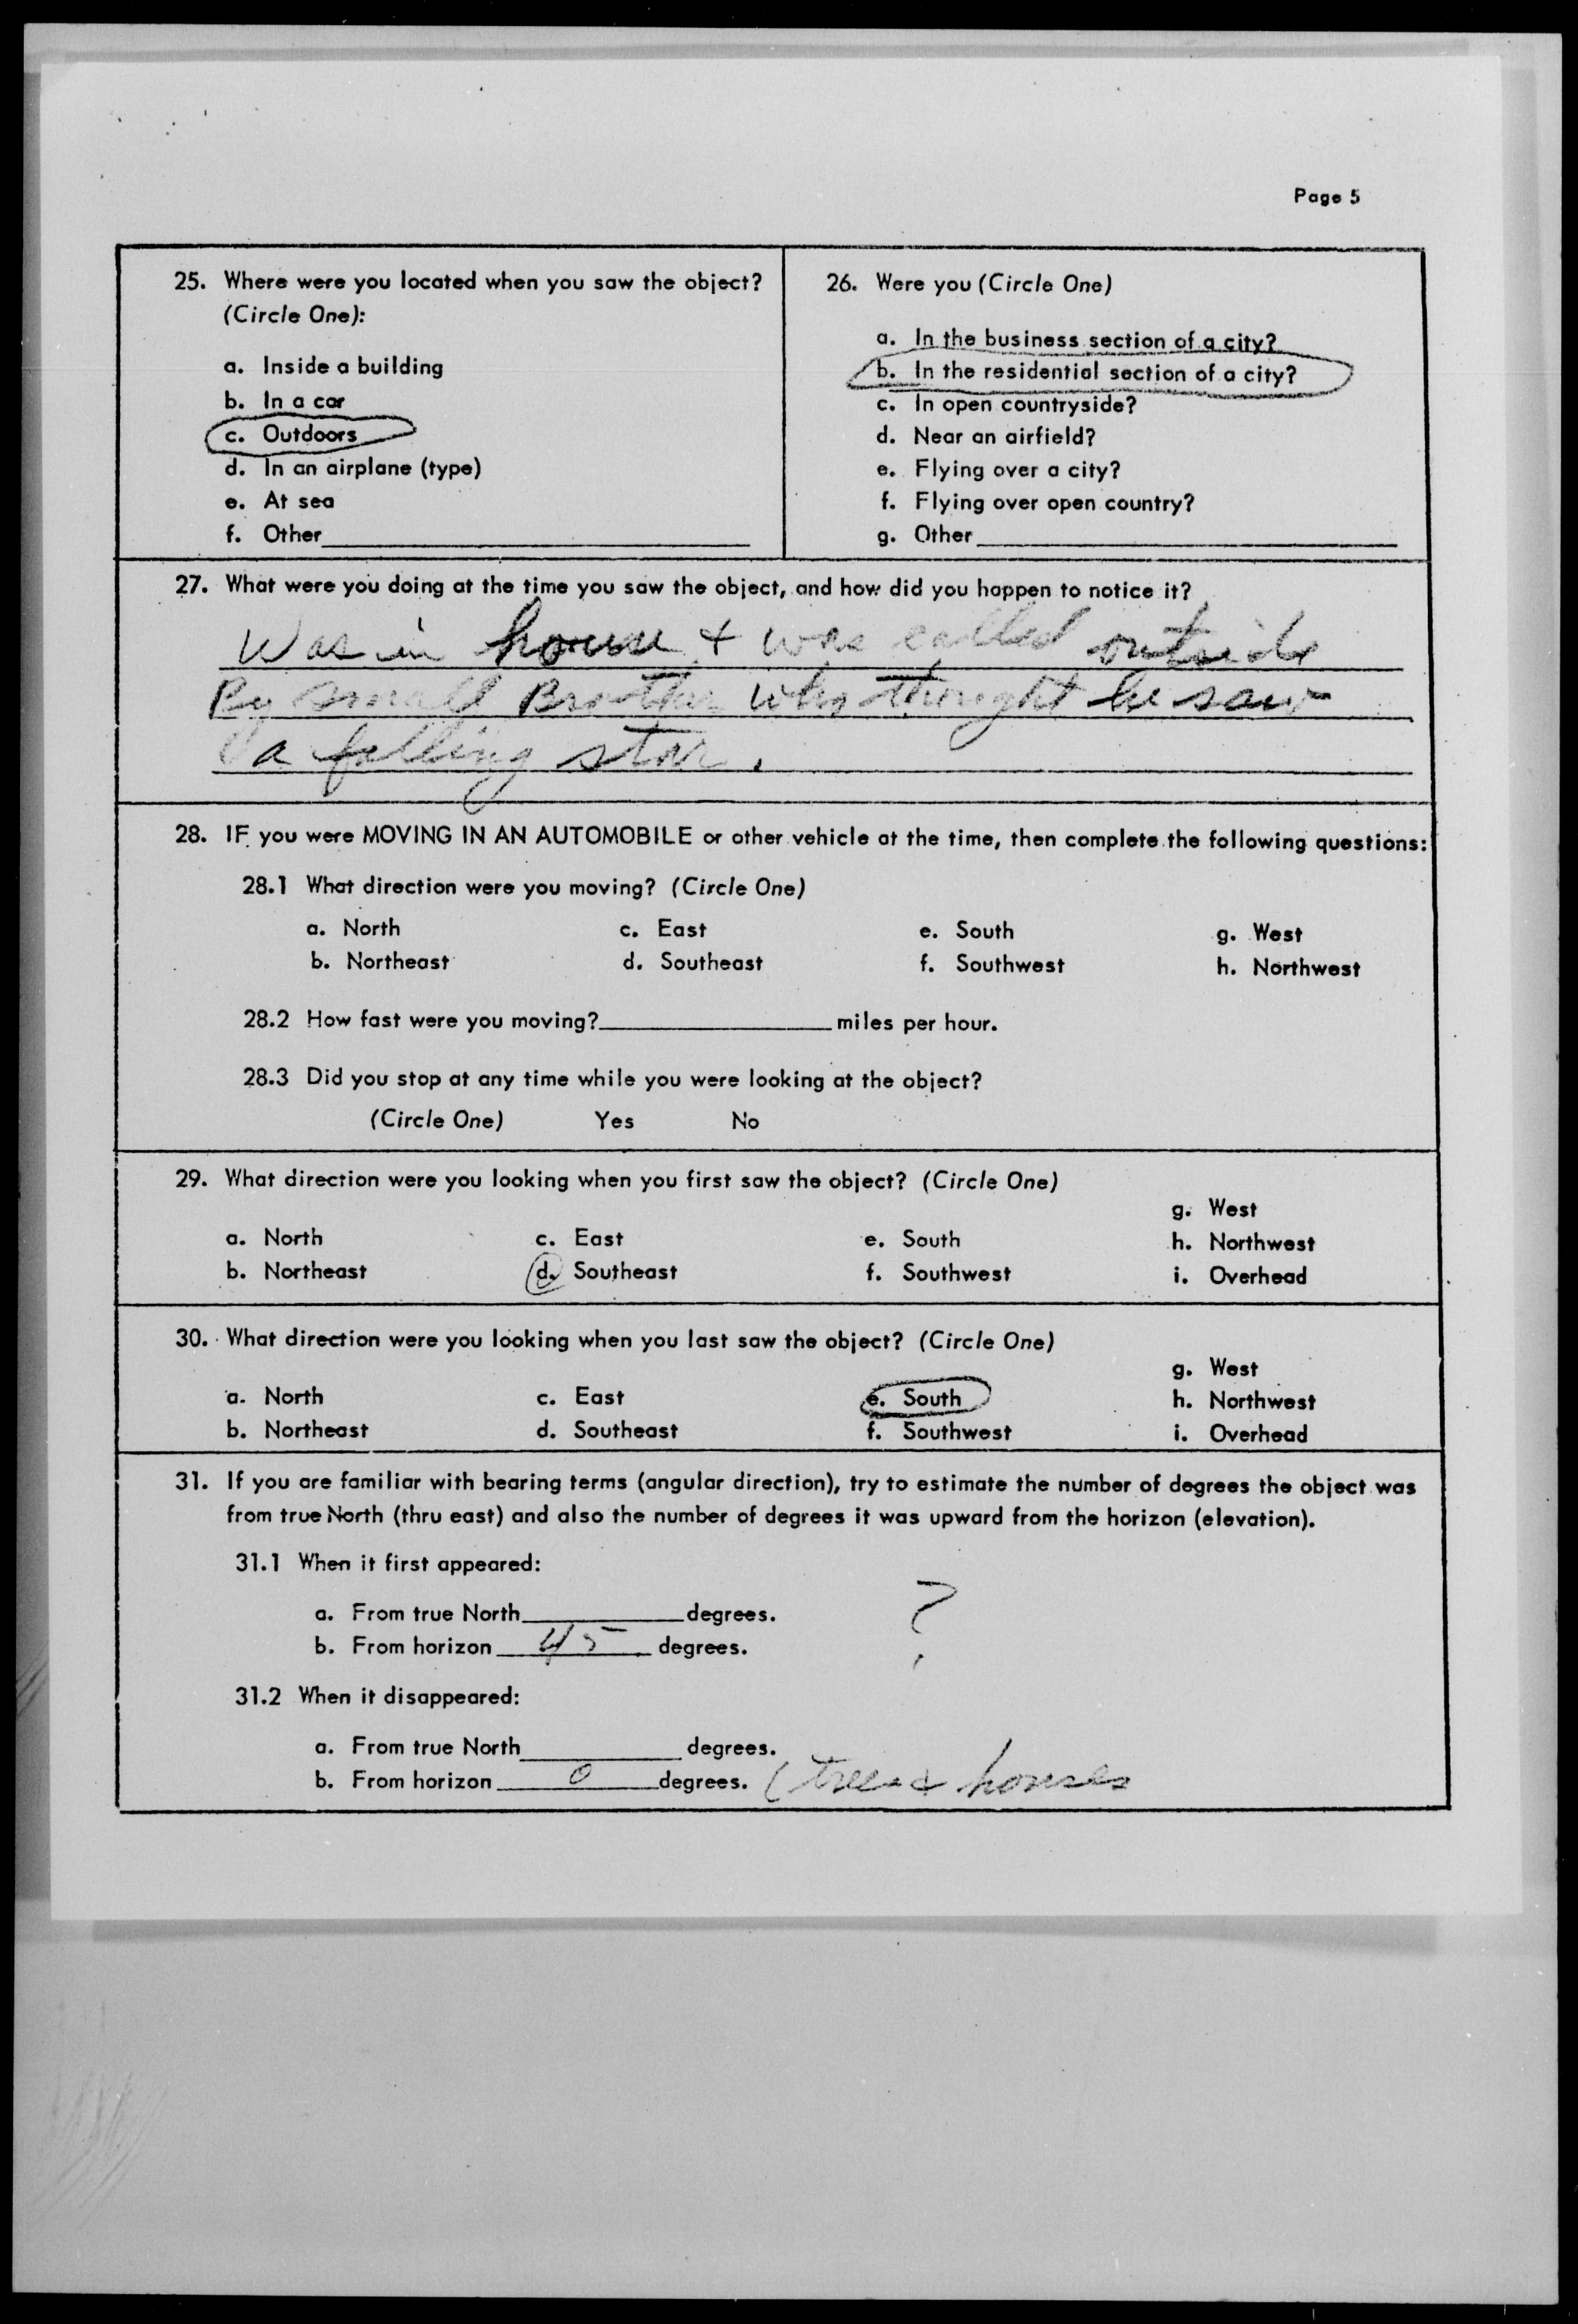 Page 5
25. Where were you located when you saw the object?
(Circle One):
a. Inside a building
b. In a car
c. Outdoors
d. In an airplane (type)
e. At sea
f. Other
26. Were you (Circle One)
a. In the business section of a city?
b. In the residential section of a city?
c. In open countryside?
d. Near an airfield?
e. Flying over a city?
f. Flying over open country?
g. Other
27. What were you doing at the time you saw the object, and how did you happen to notice it?
Was in house & was called outside
By small Brother who thought he saw
a falling star.
28. IF you were MOVING IN AN AUTOMOBILE or other vehicle at the time, then complete the following questions:
28.1 What direction were you moving? (Circle One)
a. North c. East e. South g. West
b. Northeast d. Southeast f. Southwest h. Northwest
28.2 How fast were you moving? miles per hour.
28.3 Did you stop at any time while you were looking at the object?
(Circle One) Yes No
29. What direction were you looking when you first saw the object? (Circle One)
g. West
a. North c. East e. South h. Northwest
b. Northeast d. Southeast f. Southwest i. Overhead
30. What direction were you looking when you last saw the object? (Circle One)
g. West
a. North c. East e. South h. Northwest
b. Northeast d. Southeast f. Southwest i. Overhead
31. If you are familiar with bearing terms (angular direction), try to estimate the number of degrees the object was
from true North (thru east) and also the number of degrees it was upward from the horizon (elevation).
31.1 When it first appeared:
a. From true North degrees. ?
b. From horizon 45 degrees.
31.2 When it disappeared:
a. From true North degrees.
b. From horizon 0 degrees. (trees & houses